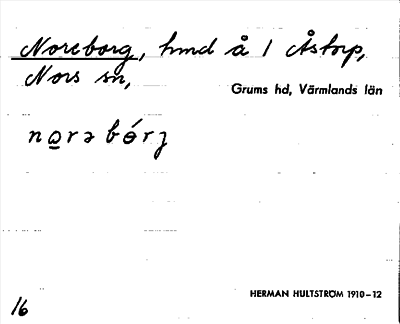 Noreborg, hmd å 1 Åstorp,
Nors sn,
Grums hd, Värmlands län
no̲rə bórʒ
HERMAN HULTSTRÖM 1910–12
16